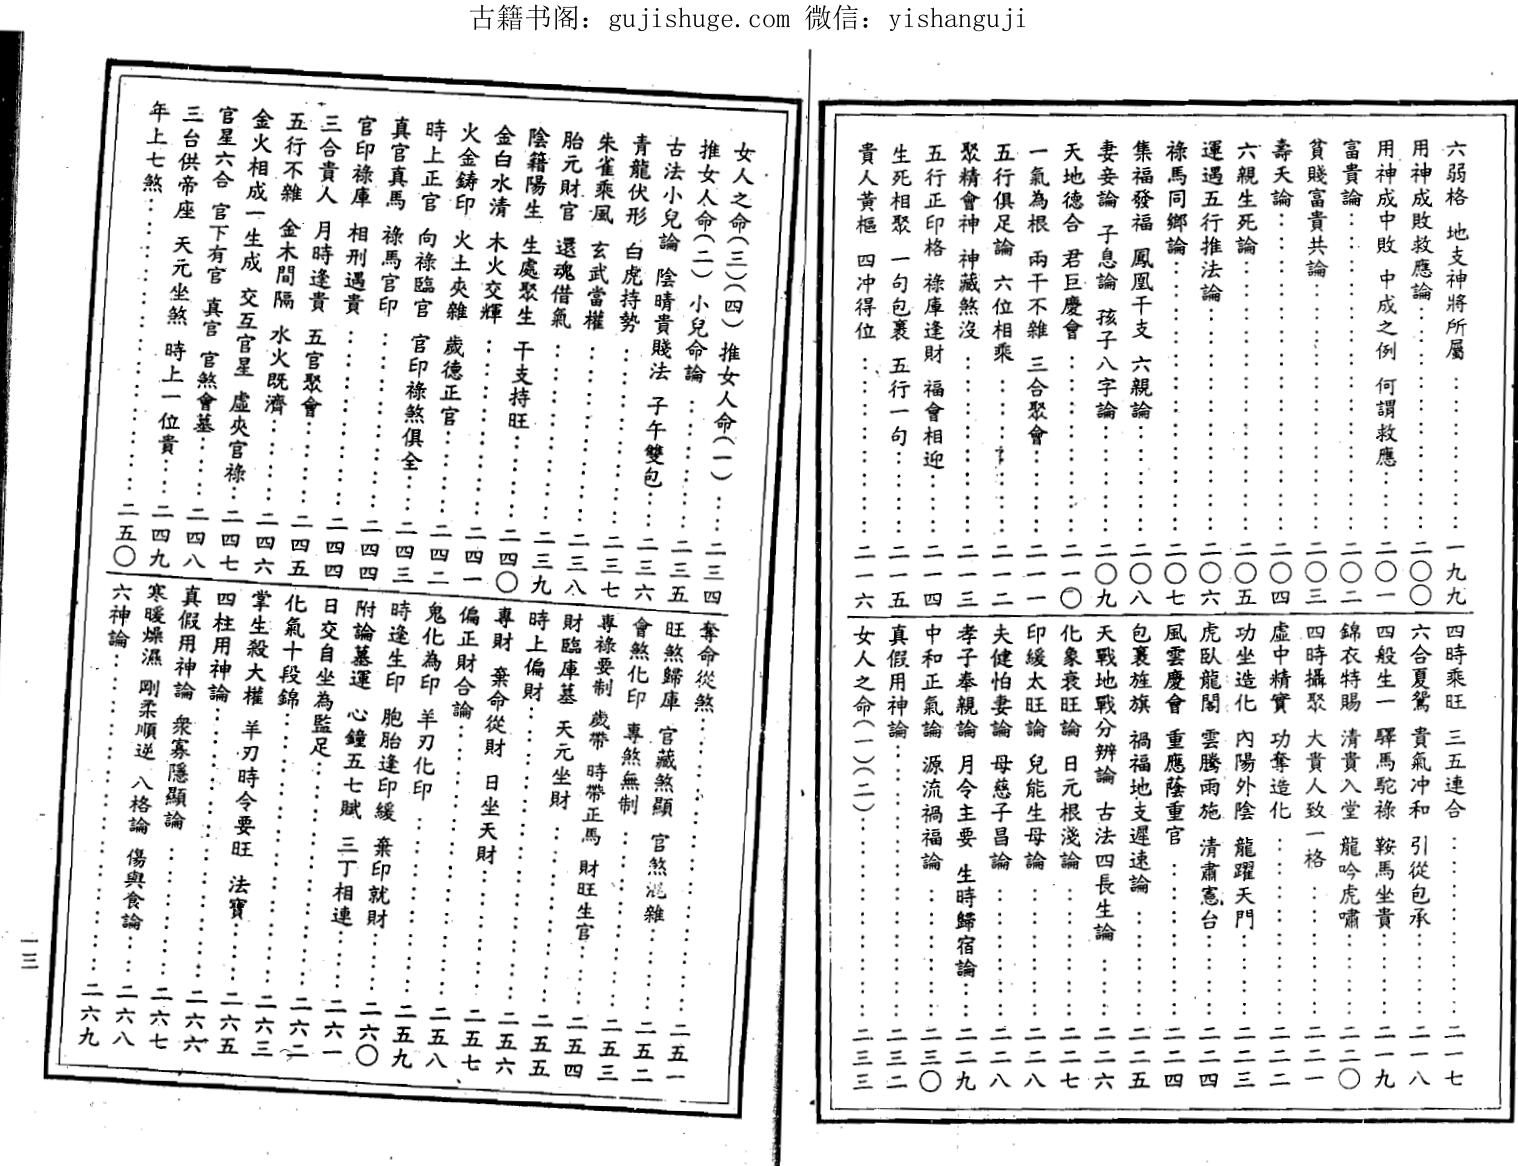 古籍书阁：gujishuge.com 微信：yishanguji
六弱格 地支神將所屬……一九九
用神成敗救應論……二〇〇
用神成中敗 中成之例 何謂救應……二〇一
富貴論……二〇二
貧賤富貴共論……二〇三
壽夭論……二〇四
六親生死論……二〇五
運遇五行推法論……二〇六
祿馬同鄉論……二〇七
集福發福 鳳凰干支 六親論……二〇八
妻妾論 子息論 孩子八字論……二〇九
天地德合 君臣慶會……二一〇
一氣為根 兩干不雜 三合聚會……二一一
五行俱足論 六位相乘……二一二
聚精會神 神藏煞沒……二一三
五行正印格 祿庫逢財 福會相迎……二一四
生死相聚 一句包裹 五行一句……二一五
貴人黃樞 四冲得位……二一六
四時乘旺 三五連合……二一七
六合夏鴛 貴氣冲和 引從包承……二一八
四般生一 驛馬駝祿 鞍馬坐貴……二一九
錦衣特賜 清貴入堂 龍吟虎嘯……二二〇
四時攝聚 大貴人致一格……二二一
虛中精實 功奪造化……二二二
功坐造化 內陽外陰 龍躍天門……二二三
虎臥龍閣 雲騰雨施 清肅憲台……二二四
風雲慶會 重應蔭重官……二二四
包裹旌旗 禍福地支遲速論……二二五
天戰地戰分辨論 古法四長生論……二二六
化象衰旺論 日元根淺論……二二七
印緩太旺論 兒能生母論……二二八
夫健怕妻論 母慈子昌論……二二八
孝子奉親論 月令主要 生時歸宿論……二二九
中和正氣論 源流禍福論……二三〇
真假用神論……二三二
女人之命(一)(二)……二三三
女人之命(三)(四) 推女人命(一)……二三四
推女人命(二) 小兒命論……二三五
古法小兒論 陰晴貴賤法 子午雙包……二三六
青龍伏形 白虎持勢……二三七
朱雀乘風 玄武當權……二三八
胎元財官 還魂借氣……二三九
陰籍陽生 生處聚生 干支持旺……二四〇
金白水清 木火交輝……二四一
火金鑄印 火土夾雜 歲德正官……二四二
時上正官 向祿臨官 官印祿煞俱全……二四三
真官真馬 祿馬官印……二四四
官印祿庫 相刑遇貴……二四四
三合貴人 月時逢貴 五官聚會……二四五
五行不雜 金木間隔 水火既濟……二四六
金火相成一生成 交互官星 虛夾官祿……二四七
官星六合 官下有官 真官 官煞會墓……二四八
三台供帝座 天元坐煞 時上一位貴……二四九
年上七煞……二五〇
奪命從煞……二五一
旺煞歸庫 官藏煞顯 官煞混雜……二五二
會煞化印 專煞無制……二五三
專祿要制 歲帶 時帶正馬 財旺生官……二五四
財臨庫墓 天元坐財……二五五
時上偏財……二五六
專財 棄命從財 日坐天財……二五七
偏正財合論……二五八
鬼化為印 羊刃化印……二五九
時逢生印 胞胎逢印緩 棄印就財……二六〇
附論墓運 心鐘五七賦 三丁相連……二六一
日交自坐為監足……二六二
化氣十段錦……二六三
掌生殺大權 羊刃時令要旺 法寶……二六五
四柱用神論……二六六
真假用神論 衆寡隱顯論……二六七
寒暖燥濕 剛柔順逆 八格論 傷與食論……二六八
六神論……二六九
一三